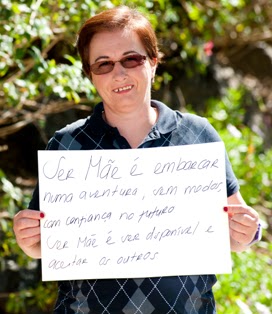 Ser Mãe é embarcar
numa aventura, sem medos,
com confiança no futuro
Ser Mãe é ser disponível e
aceitar os outros